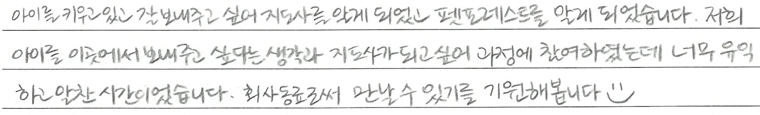 아이를 키우고있고 잘 보내주고 싶어 지도사를 알게 되었고 펫포레스트를 알게 되었습니다. 저희
아이를 이곳에서 보내주고 싶다는 생각과 지도사가 되고싶어 과정에 참여하였는데 너무 유익
하고 알찬 시간이었습니다. 회사동료로써 만날 수 있기를 기원해봅니다